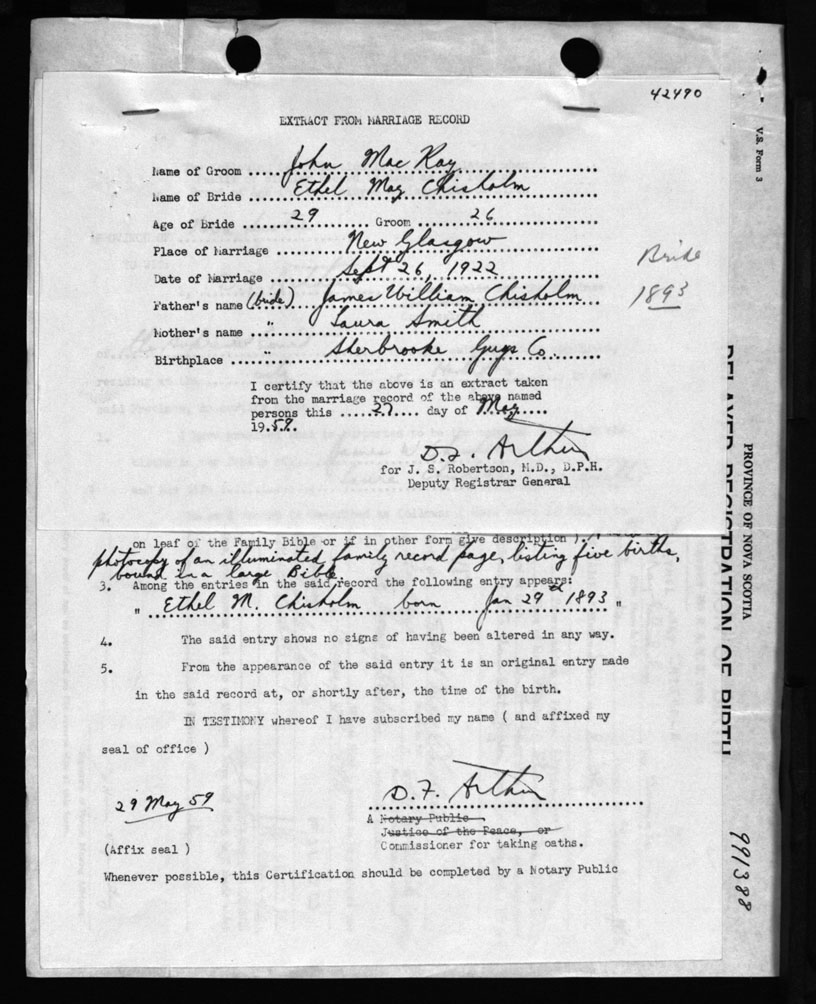 42490
V.S. Form 3
EXTRACT FROM MARRIAGE RECORD
Name of Groom John MacKay
Name of Bride Ethel May Chisholm
Age of Bride 29 Groom 26
Place of Marriage New Glasgow
Date of Marriage Sept 26, 1922
Bride
1893
Father's name (bride) James William Chisholm
Mother's name " Laura Smith
Birthplace " Sherbrooke Guys Co.
I certify that the above is an extract taken
from the marriage record of the above named
persons this .....27.... day of May....
19.59.
D.F. Arthur
for J. S. Robertson, M.D., D.P.H.
Deputy Registrar General
PROVINCE OF NOVA SCOTIA
DELAYED REGISTRATION OF BIRTH
on leaf of the Family Bible or if in other form give description ).
photocopy of an illuminated family record page, listing five births,
bound in a large Bible
3. Among the entries in the said record the following entry appears:
" Ethel M. Chisholm born Jan 29th 1893 "
4. The said entry shows no signs of having been altered in any way.
5. From the appearance of the said entry it is an original entry made
in the said record at, or shortly after, the time of the birth.
IN TESTIMONY whereof I have subscribed my name ( and affixed my
seal of office )
29 May 59
D.F. Arthur
A Notary Public
Justice of the Peace, or
Commissioner for taking oaths.
(Affix seal )
Whenever possible, this Certification should be completed by a Notary Public
991388